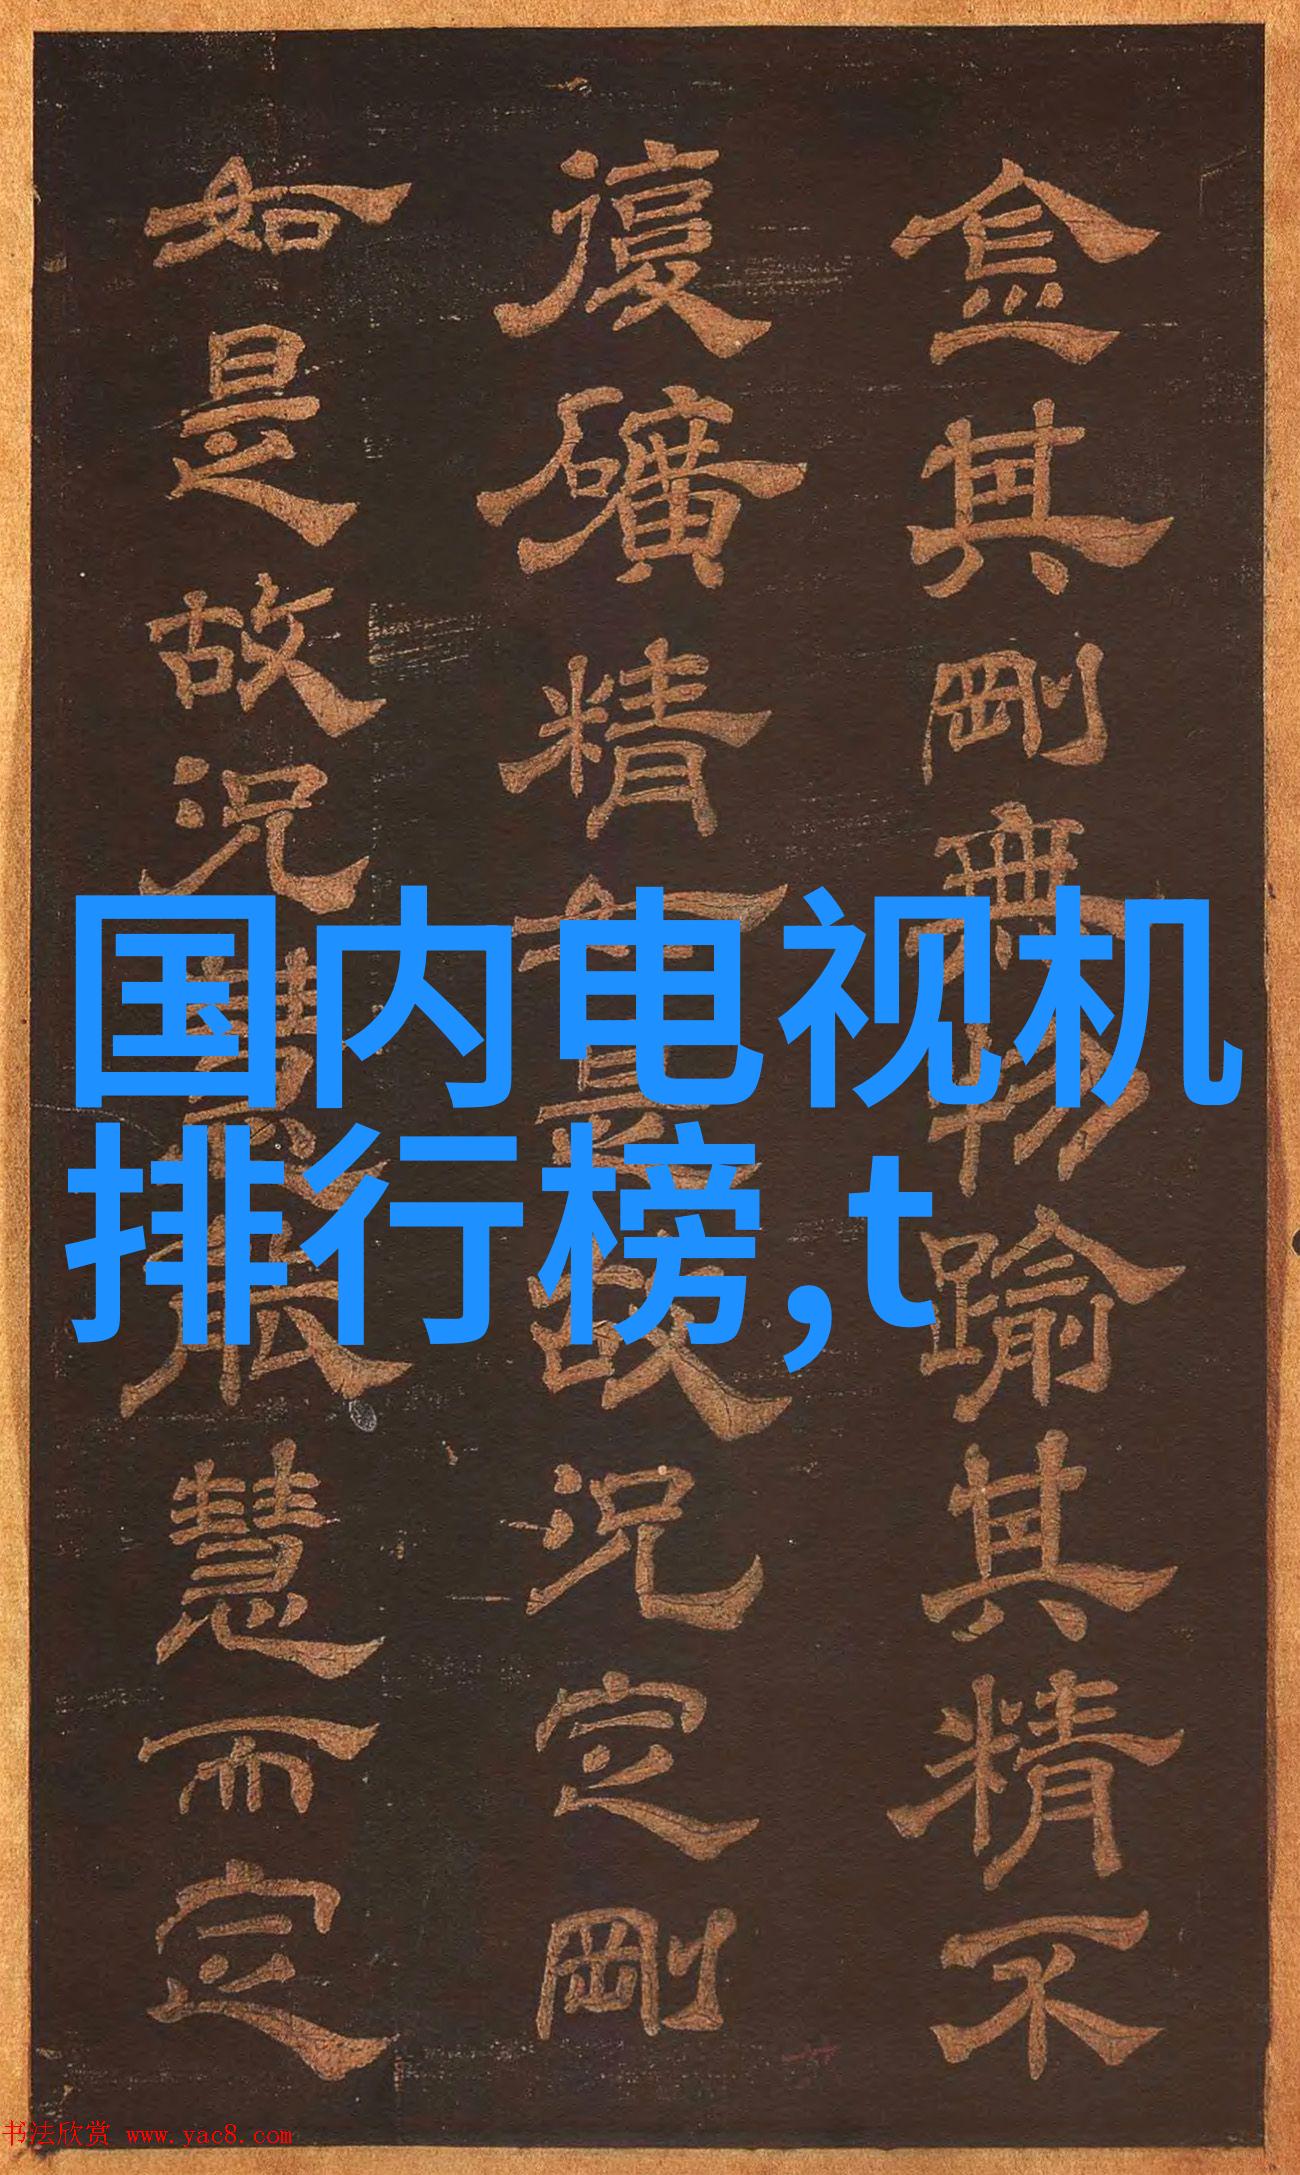 金其剛無物踰其精不
復礦精如是故況定剛
如是故況慧慧而定
国内电视机
排行榜,t
书法欣赏 www.yac8.com